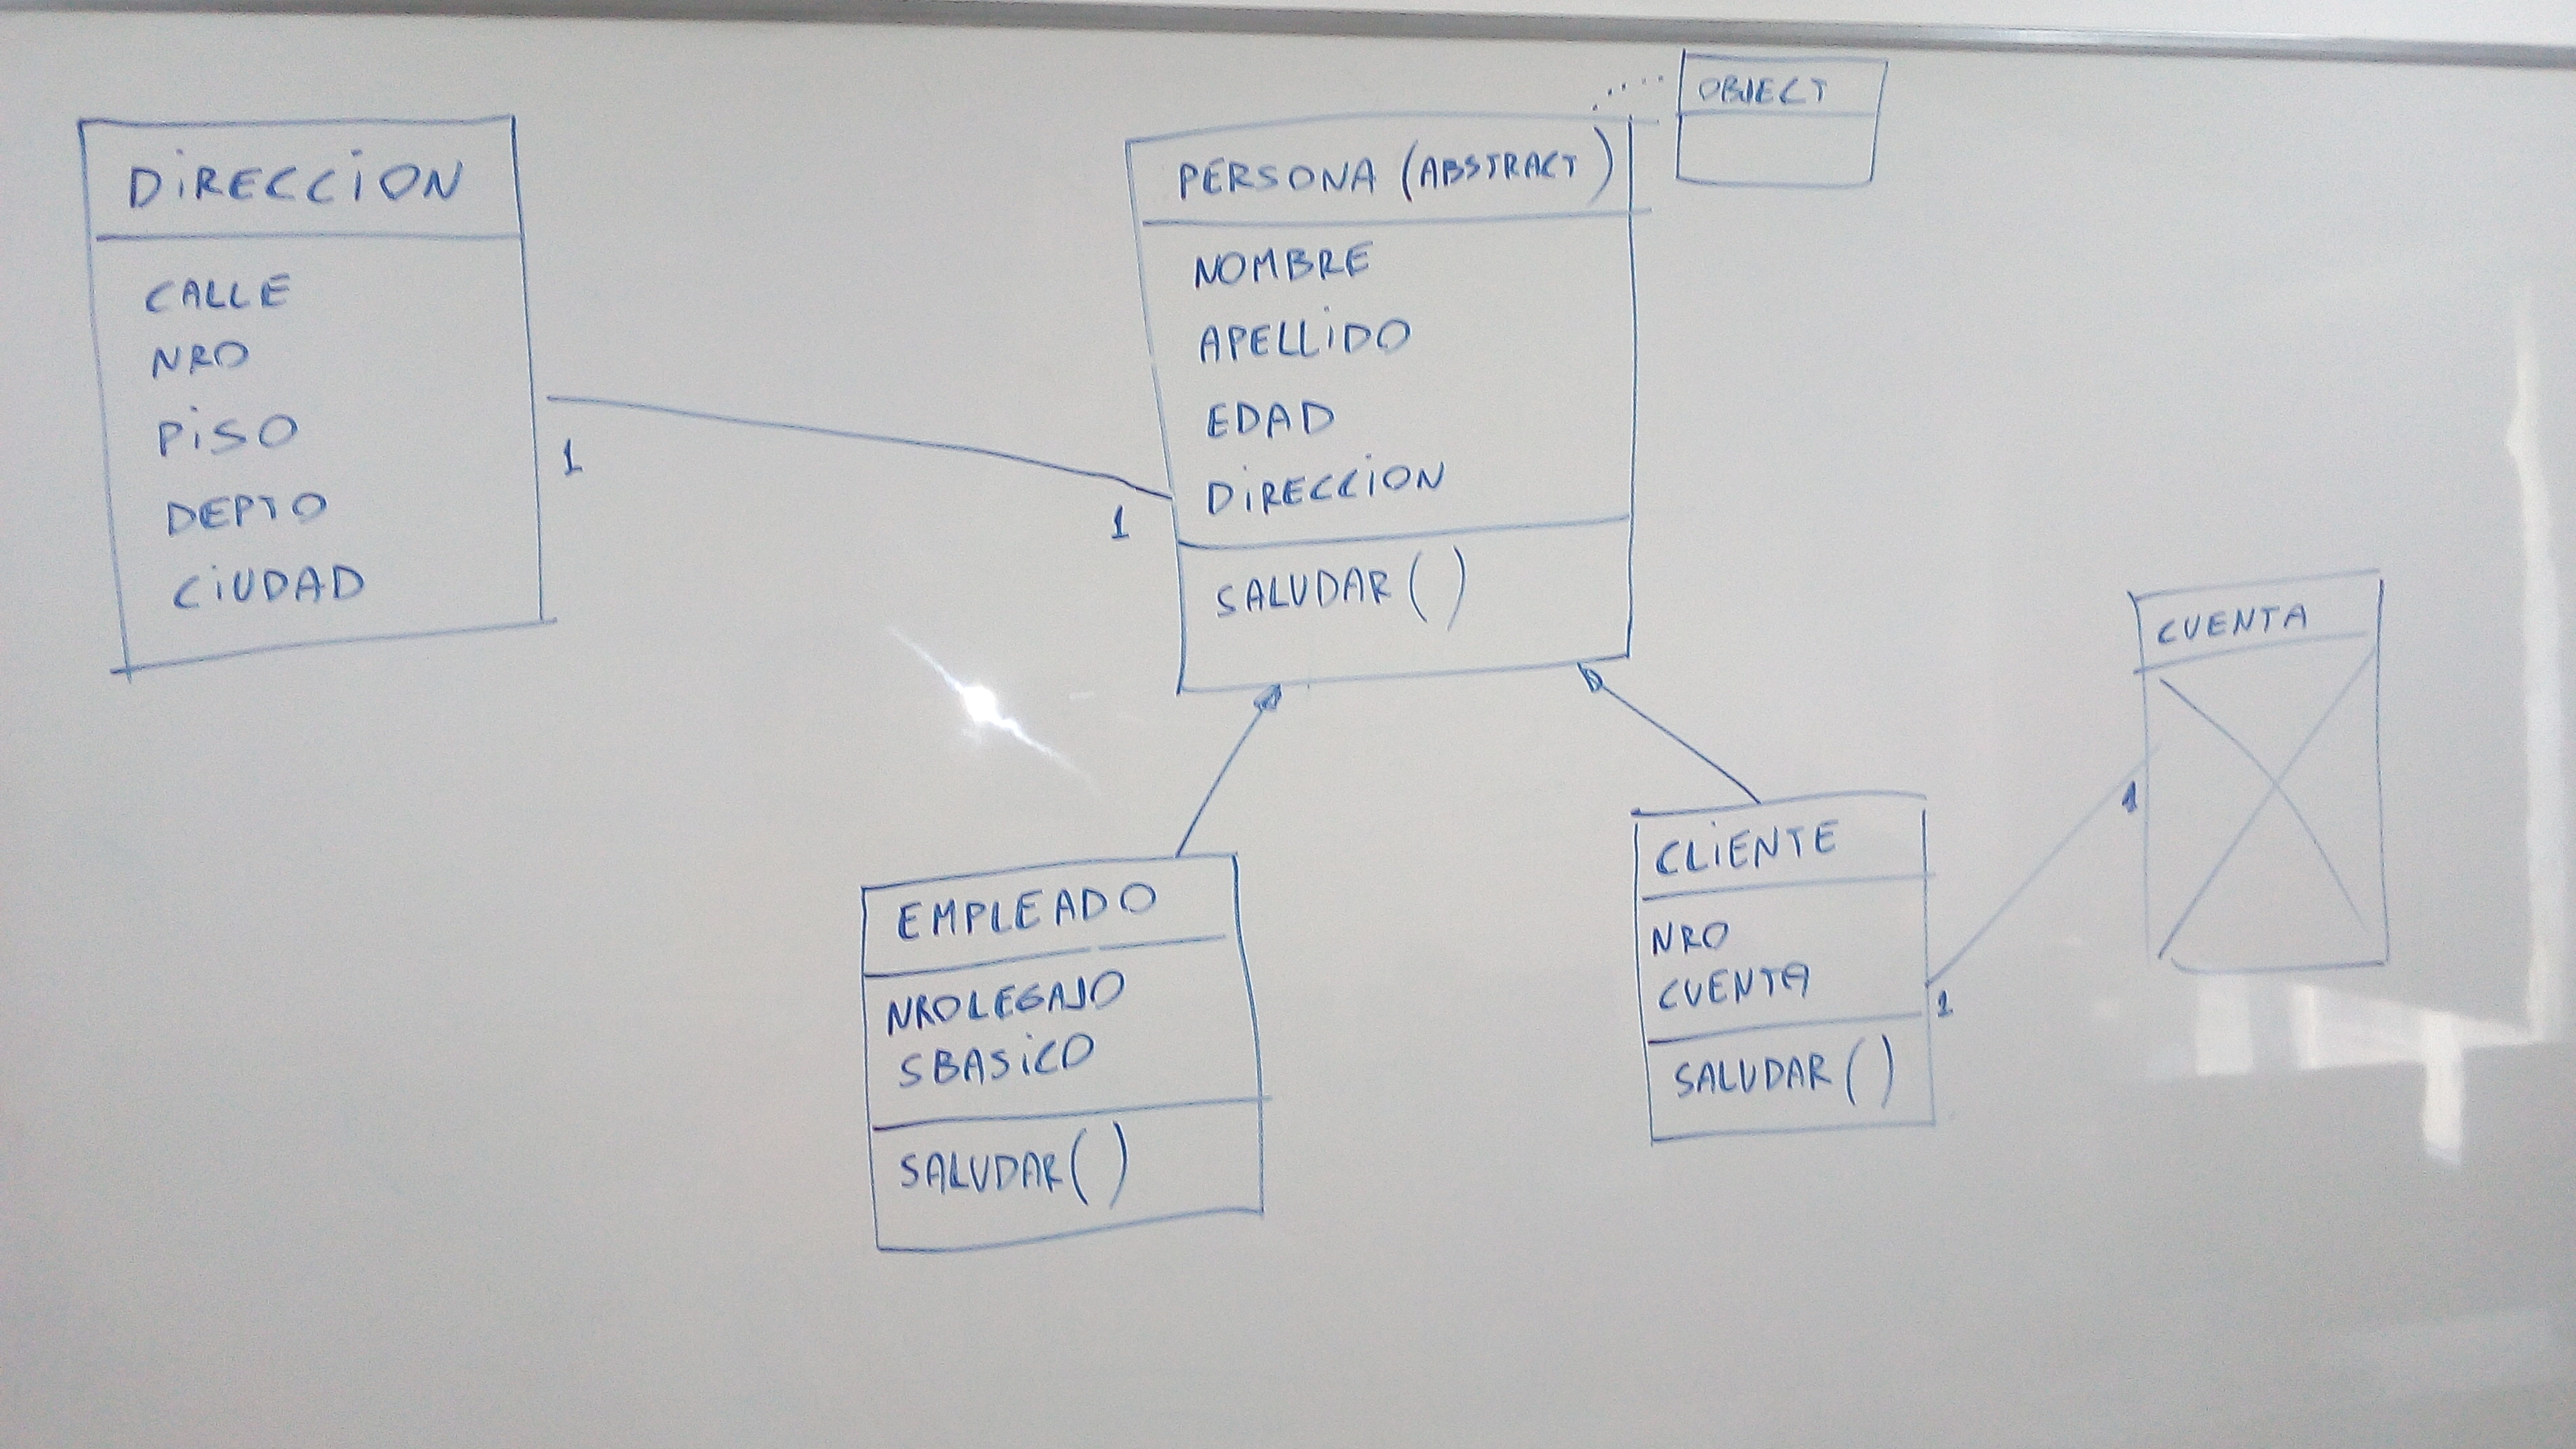 DiRECCiON
CALLE
NRO
PiSO
DEPTO
CiUDAD
1
1
OBJECT
PERSONA (ABSTRACT)
NOMBRE
APELLiDO
EDAD
DiRECCiON
SALUDAR ( )
EMPLEADO
NROLEGAJO
SBASiCO
SALUDAR ( )
CLiENTE
NRO
CUENTA
SALUDAR ( )
1
1
CUENTA